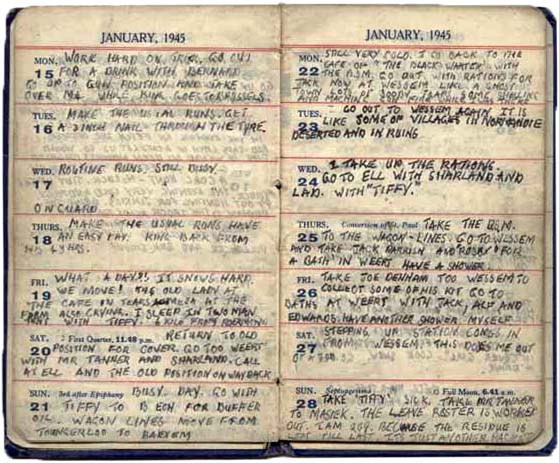 JANUARY, 1945
MON. WORK HARD ON TRIG. GO OUT
15 FOR A DRINK WITH BERNARD
GO UP TO GUN POSITION AND TAKE
OVER M4 WHILE KIRK GOES TO BRUSSELS.
TUES. MAKE THE USUAL RUNS. GET
16 A 3 INCH NAIL THROUGH THE TYRE.
WED. ROUTINE RUNS, STILL BUSY.
17
ON GUARD
THURS. MAKE THE USUAL RUNS HAVE
18 AN EASY DAY. KING BACK FROM
HIS 48 HRS.
FRI. WHAT A DAY!! IT SNOWS HARD.
19 WE MOVE! THE OLD LADY AT
THE CAFE IN TEARS AT THE
FARM ALSO CRYING. I SLEEP IN TWO MAN
TENT WITH TIFFY. 6 KILO FROM ROERMOND
SAT. First Quarter, 11.48 p.m. RETURN TO OLD
20 POSITION FOR COVER. GO TOO WEERT
WITH MR TANNER AND SHARLAND. CALL
AT ELL AND THE OLD POSITION ON WAY BACK
SUN. 3rd after Epiphany BUSY DAY. GO WITH
21 TIFFY TO B ECH FOR BUFFER
OIL. WAGON LINES MOVE FROM
TOUNGERLOO TO BAEXEM
JANUARY, 1945
MON. STILL VERY COLD. I GO BACK TO THE
22 CAFE OF "THE BLACK WATER" WITH
THE B.S.M. GO OUT WITH RATIONS FOR
JACK NOW AT WESSEM LIKE A GHOST
TOWN LOTS OF BOOBY TRAPS AND SHELLING
AND MACHINE GUN FIRE WHILE THERE
TUES. GO OUT TO WESSEM AGAIN. IT IS
23 LIKE SOME OF VILLAGES IN NORMANDIE
DESERTED AND IN RUINS
WED. I TAKE UP THE RATIONS.
24 GO TO ELL WITH SHARLAND AND
LAD. WITH "TIFFY."
THURS. Conversion of St. Paul TAKE THE B.S.M.
25 TO THE WAGON-LINES. GO TO WESSEM
AND TAKE JACK PARRISH AND "ROSBY" FOR
A BATH IN WEERT HAVE A SHOWER
FRI. TAKE JOE DENHAM TOO WESSEM TO
26 COLLECT SOME OF HIS KIT GO TO
BATHS AT WEERT WITH JACK, ALF AND
EDWARDS. HAVE ANOTHER SHOWER MYSELF
SAT. STEPPING UP STATION COMES IN
27 FROM WESSEM. THIS DOES ME OUT
OF A JOB
SUN. Septuagesima Full Moon, 6.41 a.m.
28 TAKE "TIFFY" SICK. TAKE MR TANNER
TO MASIEK. THE LEAVE ROSTER IS WORKED
OUT. I AM 207. BECAUSE THE RESIDUE IS
LEFT TILL LAST. IT'S JUST ANOTHER